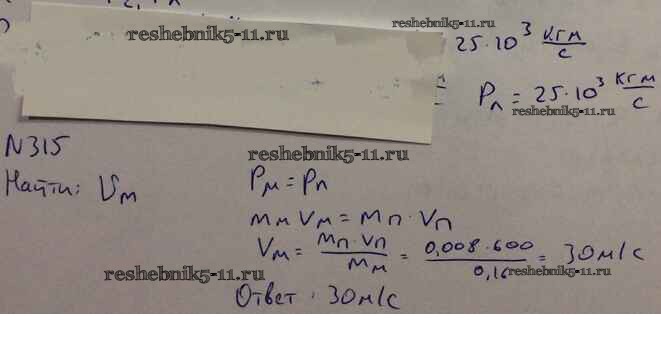 reshebnik5-11.ru
reshebnik5-11.ru
25·10³ кгм/с
Pл = 25·10³ кгм/с
reshebnik5-11.ru
N315
reshebnik5-11.ru
Найти: Vм
Pм = Pп
mм Vм = mп · Vп
Vм = mп · Vп / mм = 0,008 · 600 / 0,16 = 30м/с
reshebnik5-11.ru
reshebnik5-11.ru
Ответ: 30м/с